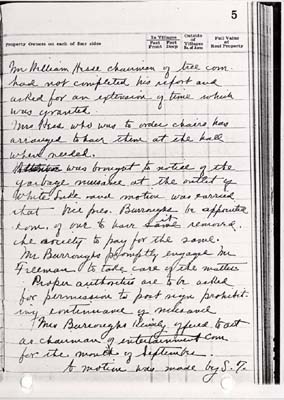 5
Property Owners on each of four sides
In Villages
Feet Front
Feet Deep
Outside of Villages
No. of Acres
Full Value of Real Property
Mr William Hesse chairman of tree com
had not completed his report and
asked for an extension of time which
was granted.
Mrs Hess who was to order chairs, has
arranged to have them at the hall
when needed.
Attention was brought to notice of the
garbage nuisance at the outlet of
White Lake and motion was carried
that Vice pres. Burroughs be appointed
com. of one to have it removed.
the society to pay for the same.
Mr Burroughs promptly engaged Mr
Freeman to take care of the matter
Proper authorities are to be asked
for permission to post sign prohibit-
ing continuance of nuisance
Mrs Burroughs kindly offered to act
as chairman of entertainment com
for the month of Septembre.
A motion was made by S. T.